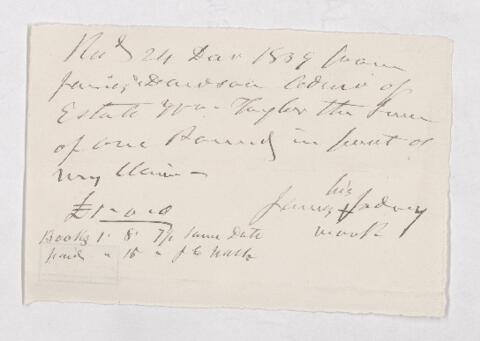 Recd 24 Dec 1839 from
James Davidson Admr of
Estate Wm Taylor the Sum
of one Pound in part of
my Claim —
£1-0-0
his
James X
mark
Books 1. 8. 7½ same Date
paid " 15 "